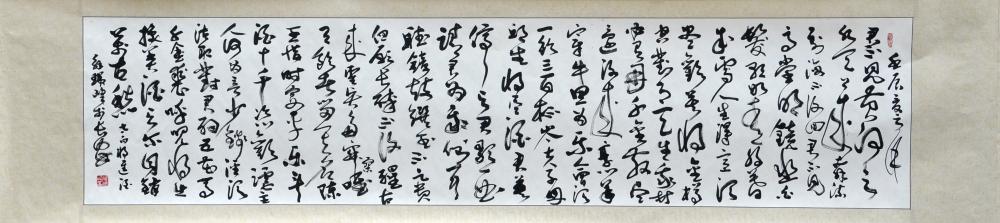 君不见黄河之
水天上来奔流
到海不复回君不见
高堂明镜悲白
发朝如青丝暮
成雪人生得意须
尽欢莫使金樽
空对月天生我材
必有用千金散尽
还复来烹羊
宰牛且为乐会须
一饮三百杯岑夫子丹
丘生将进酒君莫
停与君歌一曲
请君为我侧耳
听钟鼓馔玉不足贵
但愿长醉不复醒古
来圣贤皆寂寞
惟有饮者留其名陈
王昔时宴平乐斗
酒十千恣欢谑主
人何为言少钱径须
沽取对君酌五花马
千金裘呼儿将出
换美酒与尔同销
万古愁 李白将进酒